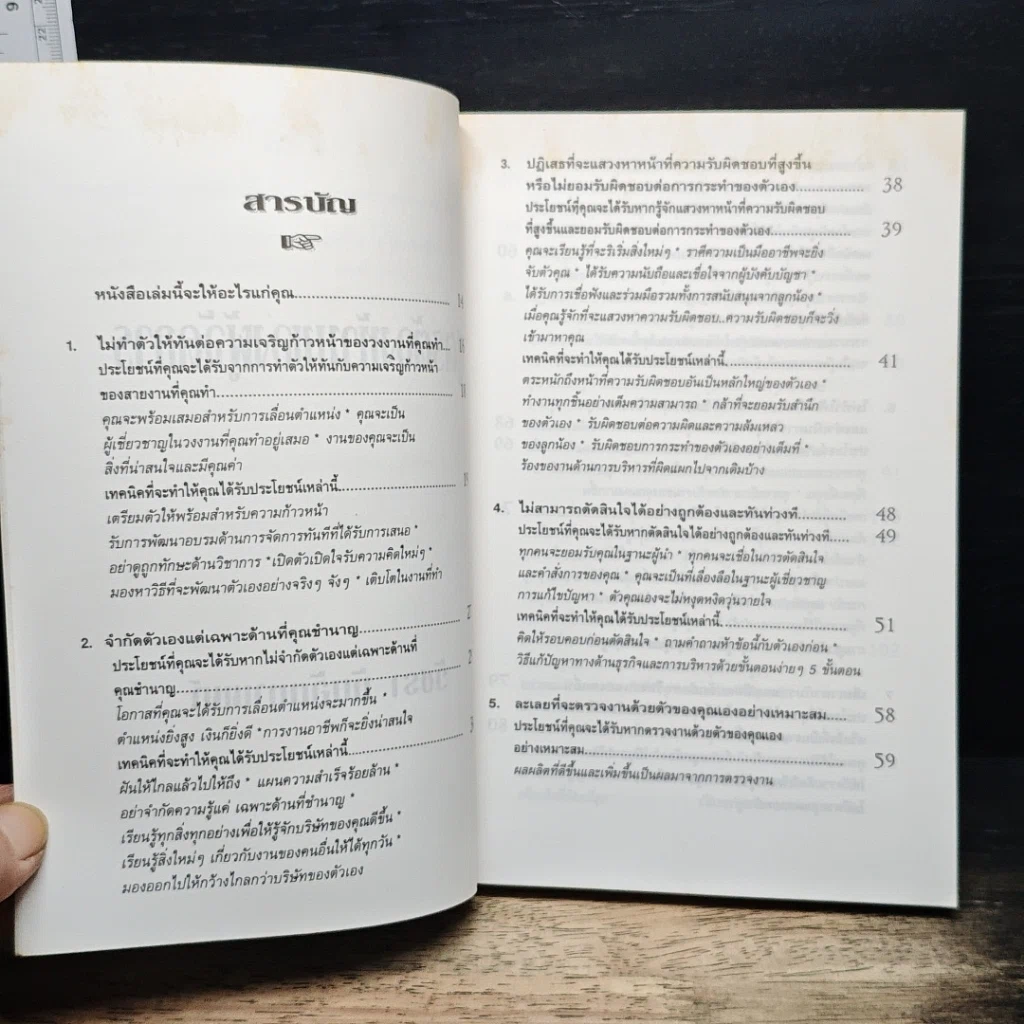 สารบัญ
หนังสือเล่มนี้จะให้อะไรแก่คุณ.................................. 14
1. ไม่ทำตัวให้ทันต่อความเจริญก้าวหน้าของวงงานที่คุณทำ...
ประโยชน์ที่คุณจะได้รับจากการทำตัวให้ทันกับความเจริญก้าวหน้า
ของสายงานที่คุณทำ..................................................
คุณจะพร้อมเสมอสำหรับการเลื่อนตำแหน่ง * คุณจะเป็น
ผู้เชี่ยวชาญในวงงานที่คุณทำอยู่เสมอ * งานของคุณจะเป็น
สิ่งที่น่าสนใจและมีคุณค่า
เทคนิคที่จะทำให้คุณได้รับประโยชน์เหล่านี้.........................
เตรียมตัวให้พร้อมสำหรับความก้าวหน้า
รับการพัฒนาอบรมด้านการจัดการทันทีที่ได้รับการเสนอ *
อย่าดูถูกทักษะด้านวิชาการ * เปิดตัวเปิดใจรับความคิดใหม่ๆ *
มองหาวิธีที่จะพัฒนาตัวเองอย่างจริงๆ จังๆ * เติบโตในงานที่ทำ
2. จำกัดตัวเองแต่เฉพาะด้านที่คุณชำนาญ......................
ประโยชน์ที่คุณจะได้รับหากไม่จำกัดตัวเองแต่เฉพาะด้านที่
คุณชำนาญ............................................................
โอกาสที่คุณจะได้รับการเลื่อนตำแหน่งจะมากขึ้น *
ตำแหน่งยิ่งสูง เงินก็ยิ่งดี * การงานอาชีพก็จะยิ่งน่าสนใจ
เทคนิคที่จะทำให้คุณได้รับประโยชน์เหล่านี้.........................
ฝันให้ไกลแล้วไปให้ถึง * แผนความสำเร็จร้อยล้าน *
อย่าจำกัดความรู้แค่ เฉพาะด้านที่ชำนาญ *
เรียนรู้ทุกสิ่งทุกอย่างเพื่อให้รู้จักบริษัทของคุณดีขึ้น *
เรียนรู้สิ่งใหม่ๆ เกี่ยวกับงานของคนอื่นให้ได้ทุกวัน *
มองออกไปให้กว้างไกลกว่าบริษัทของตัวเอง
3. ปฏิเสธที่จะแสวงหาหน้าที่ความรับผิดชอบที่สูงขึ้น
หรือไม่ยอมรับผิดชอบต่อการกระทำของตัวเอง................. 38
ประโยชน์ที่คุณจะได้รับหากรู้จักแสวงหาหน้าที่ความรับผิดชอบ
ที่สูงขึ้นและยอมรับผิดชอบต่อการกระทำของตัวเอง.................... 39
คุณจะเรียนรู้ที่จะริเริ่มสิ่งใหม่ๆ * ราศีความเป็นมืออาชีพจะยิ่ง
จับตัวคุณ * ได้รับความนับถือและเชื่อใจจากผู้บังคับบัญชา *
ได้รับการเชื่อฟังและร่วมมือรวมทั้งการสนับสนุนจากลูกน้อง *
เมื่อคุณรู้จักที่จะแสวงหาความรับผิดชอบ..ความรับผิดชอบก็จะวิ่ง
เข้ามาหาคุณ
เทคนิคที่จะทำให้คุณได้รับประโยชน์เหล่านี้............................. 41
ตระหนักถึงหน้าที่ความรับผิดชอบอันเป็นหลักใหญ่ของตัวเอง *
ทำงานทุกชิ้นอย่างเต็มความสามารถ * กล้าที่จะยอมรับสำนึก
ของตัวเอง * รับผิดชอบต่อความผิดและความล้มเหลว
ของลูกน้อง * รับผิดชอบการกระทำของตัวเองอย่างเต็มที่ *
ร้องของานด้านการบริหารที่ผิดแผกไปจากเดิมบ้าง
4. ไม่สามารถตัดสินใจได้อย่างถูกต้องและทันท่วงที............ 48
ประโยชน์ที่คุณจะได้รับหากตัดสินใจได้อย่างถูกต้องและทันท่วงที..... 49
ทุกคนจะยอมรับคุณในฐานะผู้นำ * ทุกคนจะเชื่อในการตัดสินใจ
และคำสั่งการของคุณ * คุณจะเป็นที่เลื่องลือในฐานะผู้เชี่ยวชาญ
การแก้ไขปัญหา * ตัวคุณเองจะไม่หงุดหงิดวุ่นวายใจ
เทคนิคที่จะทำให้คุณได้รับประโยชน์เหล่านี้............................. 51
คิดให้รอบคอบก่อนตัดสินใจ * ถามคำถามห้าข้อนี้กับตัวเองก่อน *
วิธีแก้ปัญหาทางด้านธุรกิจและการบริหารด้วยขั้นตอนง่ายๆ 5 ขั้นตอน
5. ละเลยที่จะตรวจงานด้วยตัวของคุณเองอย่างเหมาะสม..... 58
ประโยชน์ที่คุณจะได้รับหากตรวจงานด้วยตัวของคุณเอง
อย่างเหมาะสม................................................................ 59
ผลผลิตที่ดีขึ้นและเพิ่มขึ้นเป็นผลมาจากการตรวจงาน